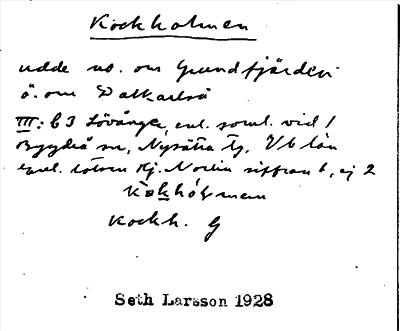 Kockholmen
udde no. om Grundfjärden
ö. om Dalkarlså
III: 63 Lövånger, enl. soml. vid 1
Bygdeå sn, Nysätra tg, Vb län
enl. lotsen Kj. Norlin siffran 1, ej 2
mann
Kockh. G
Seth Larsson 1928